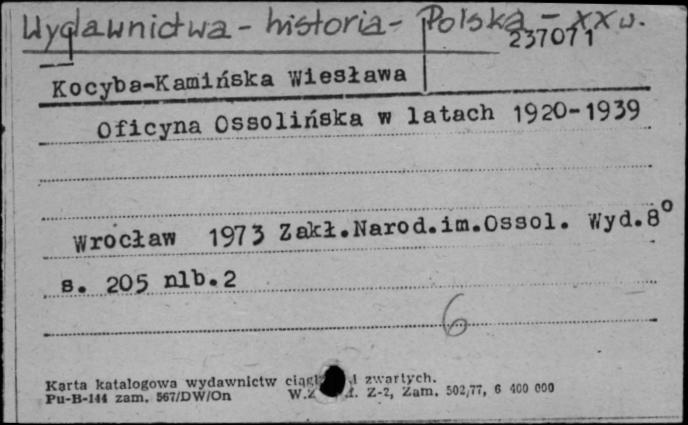 Wydawnictwa - historia - Polska - XX w.
237071
Kocyba-Kamińska Wiesława
Oficyna Ossolińska w latach 1920-1939
Wrocław 1973 Zakł.Narod.im.Ossol. Wyd.8°
s. 205 nlb.2
6
Karta katalogowa wydawnictw zwartych.
Pu-B-144 zam. 567/DW/On Z-2, Zam. 502/77, 6 400 000